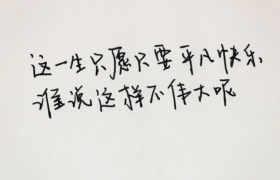 这一生只愿只要平凡快乐,
谁说这样不伟大呢